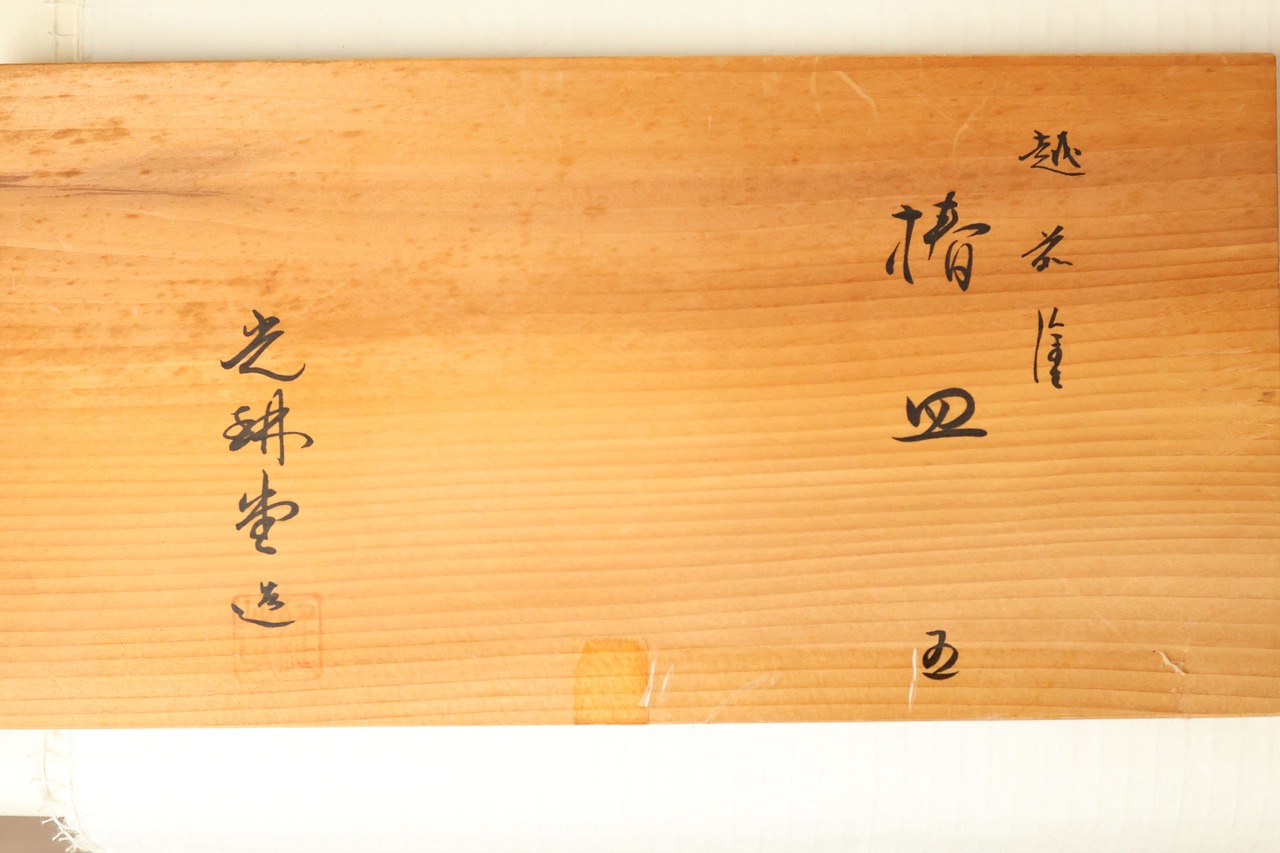 越前塗
椿皿 五
光琳堂造